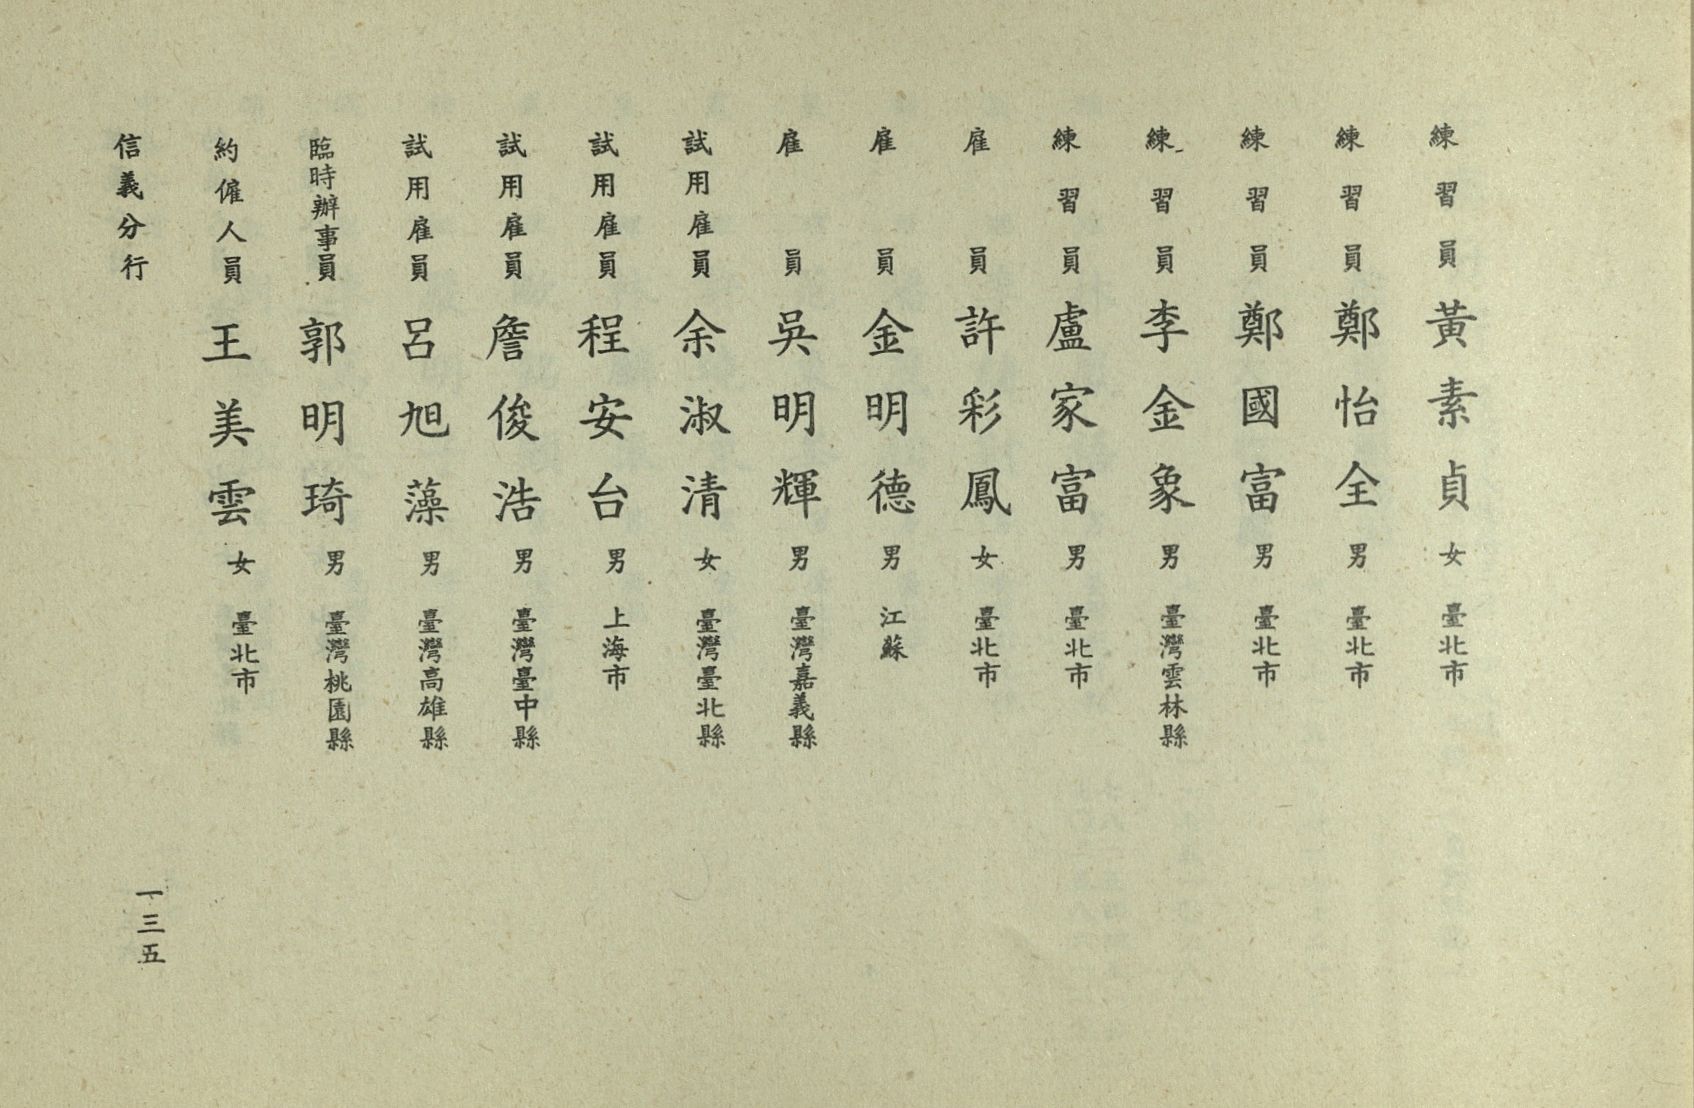 練習員 黃素貞 女 臺北市
練習員 鄭怡全 男 臺北市
練習員 鄭國富 男 臺北市
練習員 李金象 男 臺灣雲林縣
練習員 盧家富 男 臺北市
雇員 許彩鳳 女 臺北市
雇員 金明德 男 江蘇
雇員 吳明輝 男 臺灣嘉義縣
試用雇員 余淑清 女 臺灣臺北縣
試用雇員 程安台 男 上海市
試用雇員 詹俊浩 男 臺灣臺中縣
試用雇員 呂旭藻 男 臺灣高雄縣
臨時辦事員 郭明琦 男 臺灣桃園縣
約僱人員 王美雲 女 臺北市
信義分行
一三五